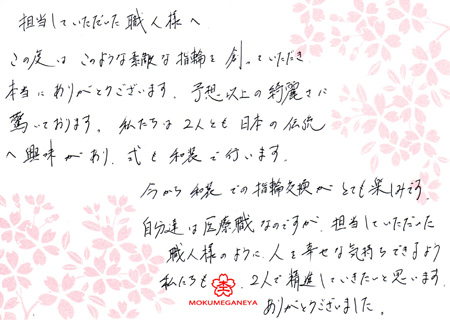 担当していただいた職人様へ
この度は このような素敵な指輪を 創っていただき
本当に ありがとうございます。予想以上の綺麗さに
驚いております。私たちは 2人とも 日本の伝統
へ興味があり、式も和装で行います。
今から 和装での指輪交換が とても楽しみです。
自分達は医療職なのですが、担当していただいた
職人様のように 人を幸せな気持ちできるよう
私たちも、2人で精進していきたいと思います。
ありがとうございました。
MOKUMEGANEYA